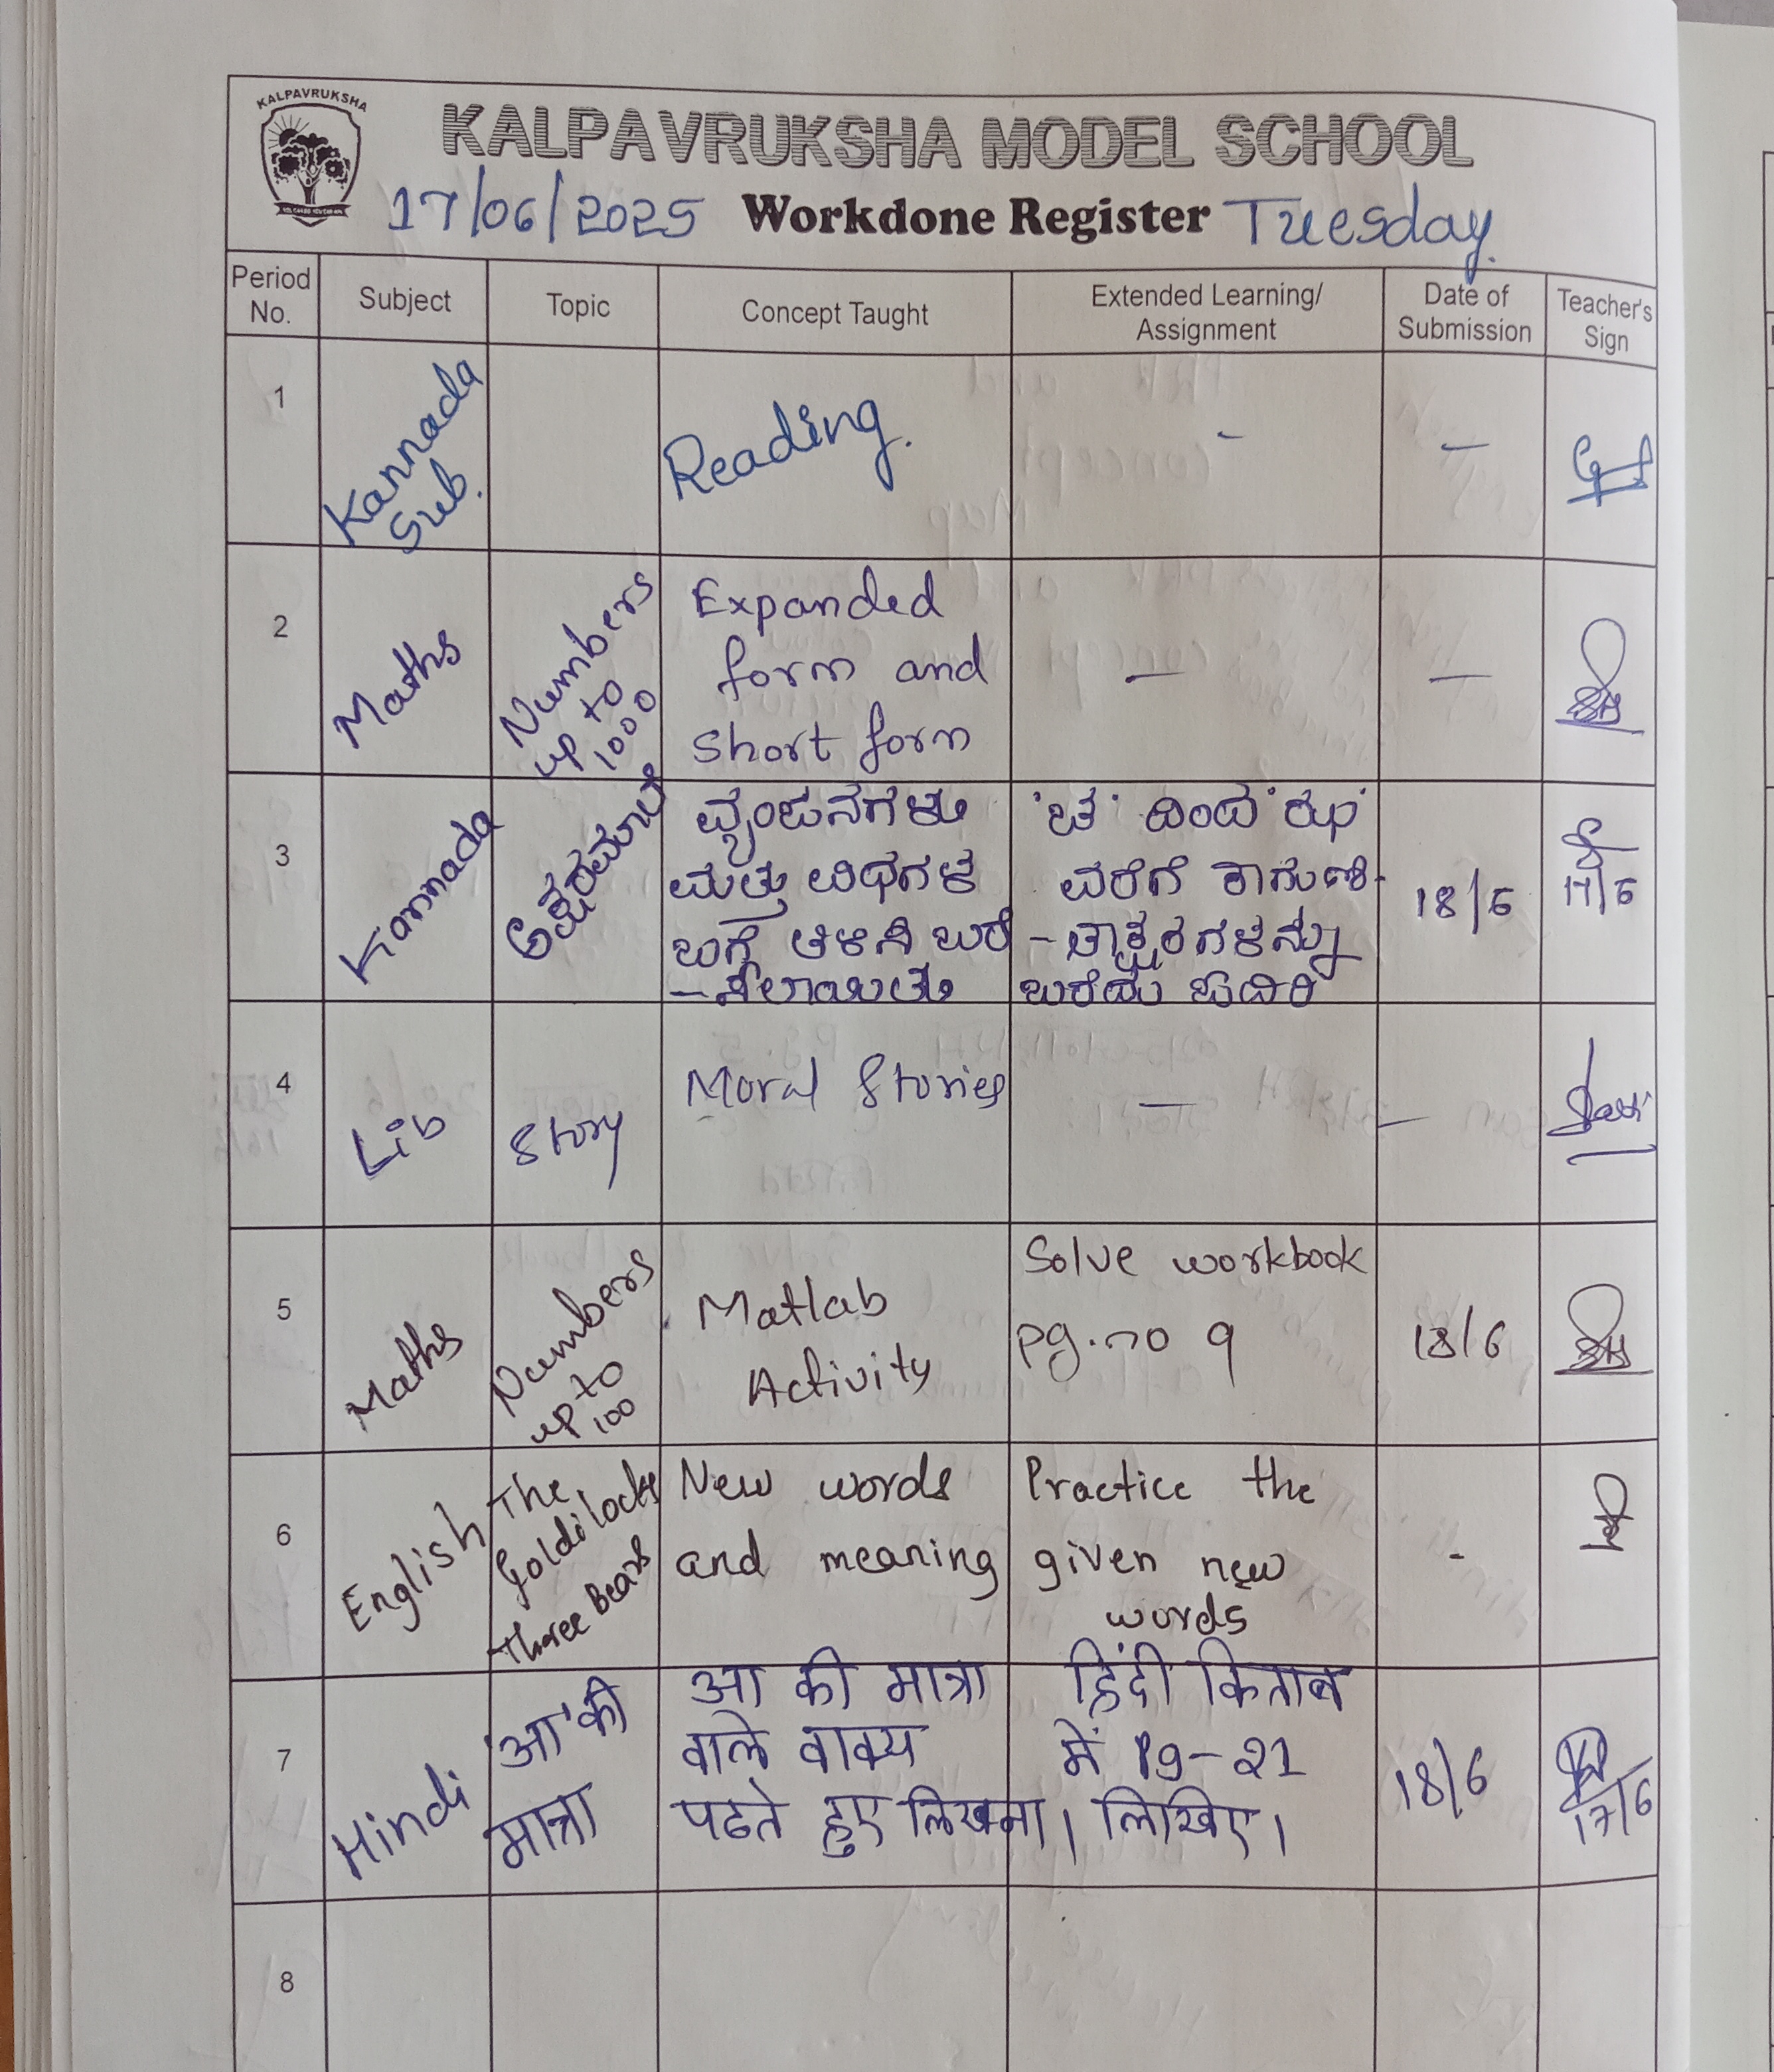 KALPAVRUKSHA
KALPAVRUKSHA MODEL SCHOOL
17/06/2025 Workdone Register Tuesday
Period No.
Subject
Topic
Concept Taught
Extended Learning/
Assignment
Date of
Submission
Teacher's
Sign
1
Kannada
Sub.
Reading.
-
-
2
Maths
Numbers
up to
1000
Expanded
form and
short form
-
-
3
Kannada
ಅಕ್ಷರಮಾಲೆ
ವ್ಯಂಜನಗಳು
ಮತ್ತು ವಿಧಗಳ
ಬಗ್ಗೆ ತಿಳಿಸಿ ಬರೆ
-ಸಲಾಯಿತು
'ಚ' ದಿಂದ 'ಝ'
ವರೆಗೆ ಕಾಗುಣಿ-
-ತಾಕ್ಷರಗಳನ್ನು
ಬರೆದು ಓದಿರಿ
18/6
17/6
4
Lib
Story
Moral Stories
-
-
5
Maths
Numbers
up to
100
Matlab
Activity
Solve workbook
pg.no 9
18/6
6
English
The
Goldilocks
Three Bears
New words
and meaning
Practice the
given new
words
-
7
Hindi
'आ' की
मात्रा
आ की मात्रा
वाले वाक्य
पढते हुए लिखना।
हिंदी किताब
में Pg-21
लिखिए।
18/6
17/6
8